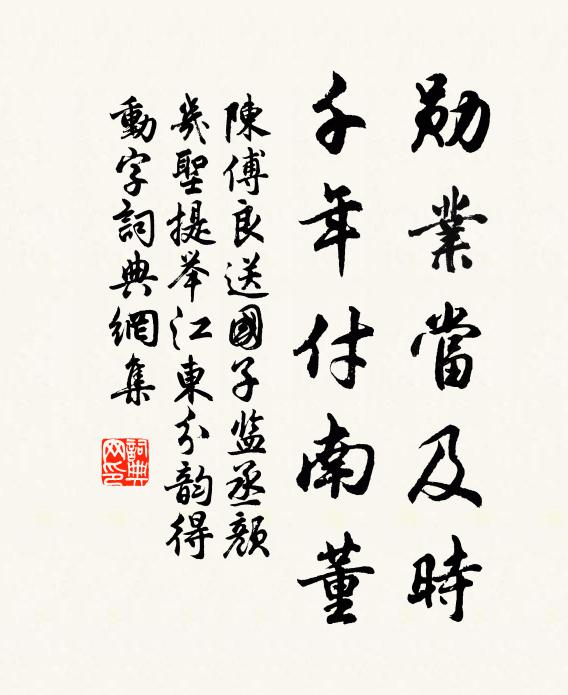 勛業當及時
千年付南董
陳傅良送國子监丞顏
幾聖提举江東分韵得
動字詞典網集
詞典網印